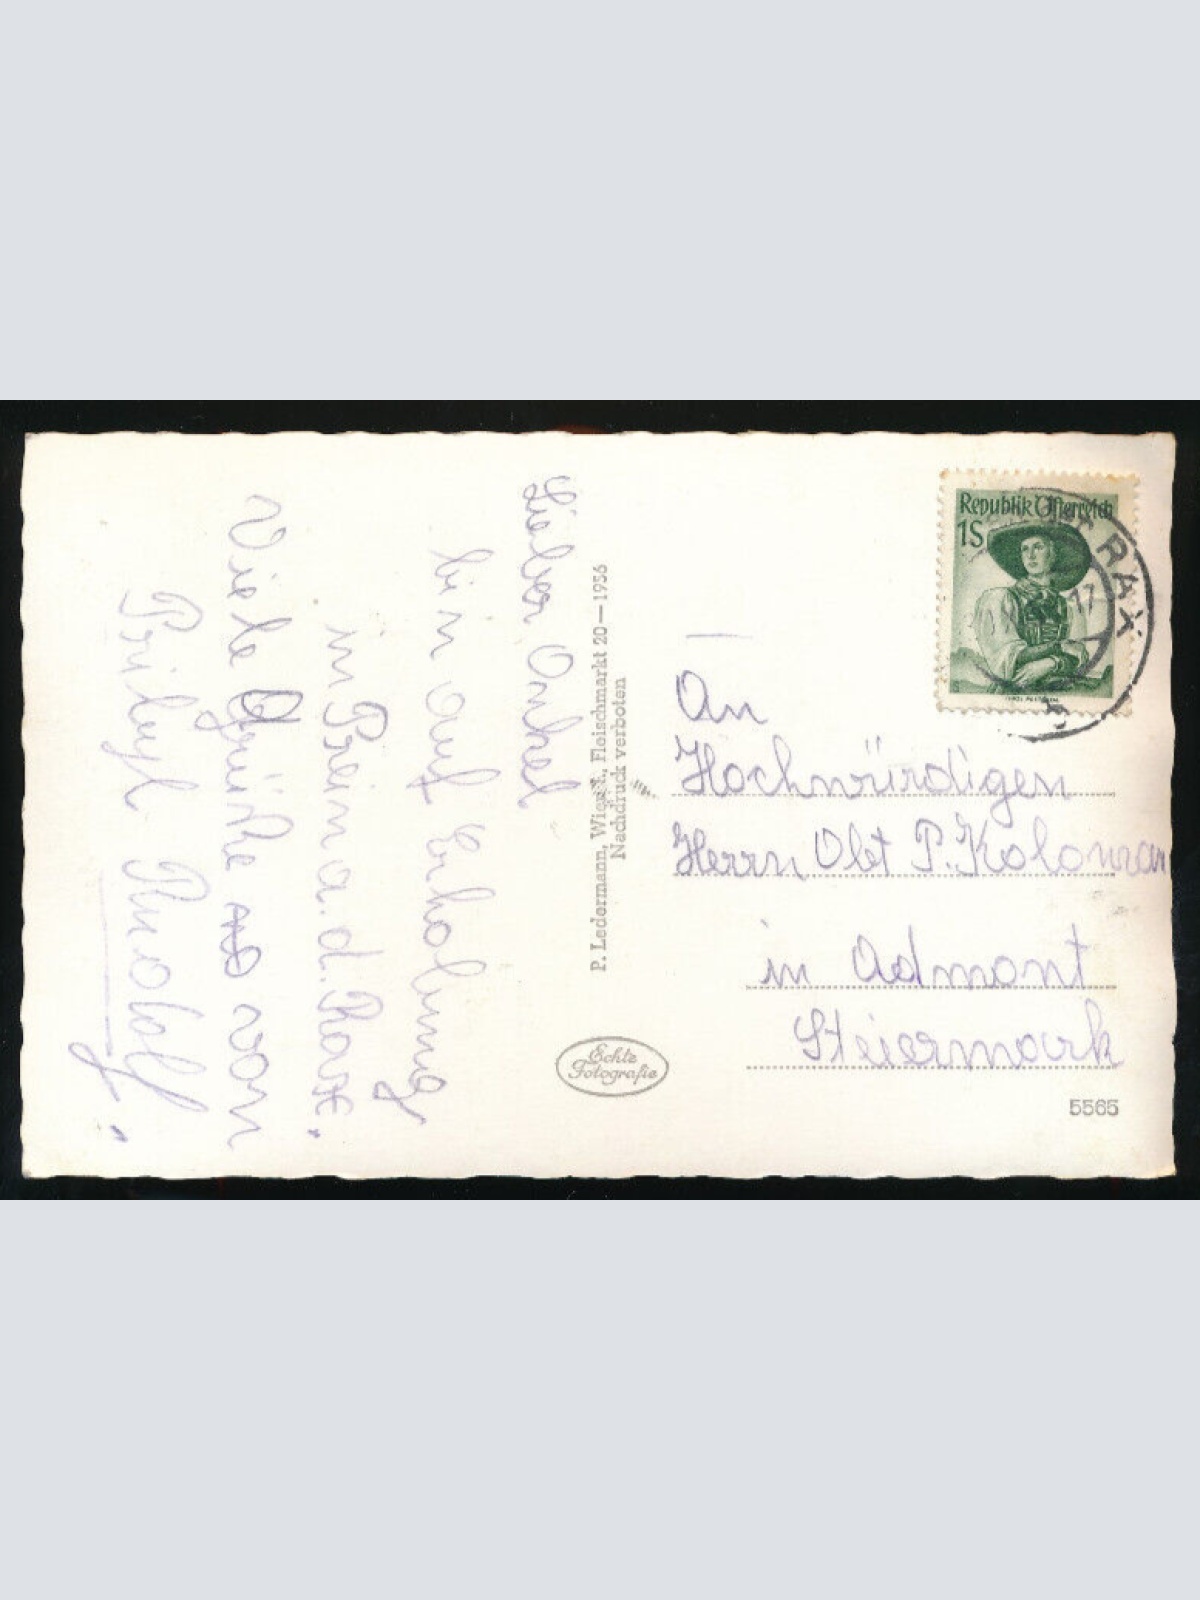 Lieber Onkel
bin auf Erholung
in Prein a. d. Rax.
Viele Grüße von
Pribyl Rudolf.
P. Ledermann, Wien I., Fleischmarkt 20—1956
Nachdruck verboten
Echte
Fotografie
Republik Österreich
1S
RAX
17
An
Hochwürdigen
Herrn Obt P. Koloman
in Admont
Steiermark
5565